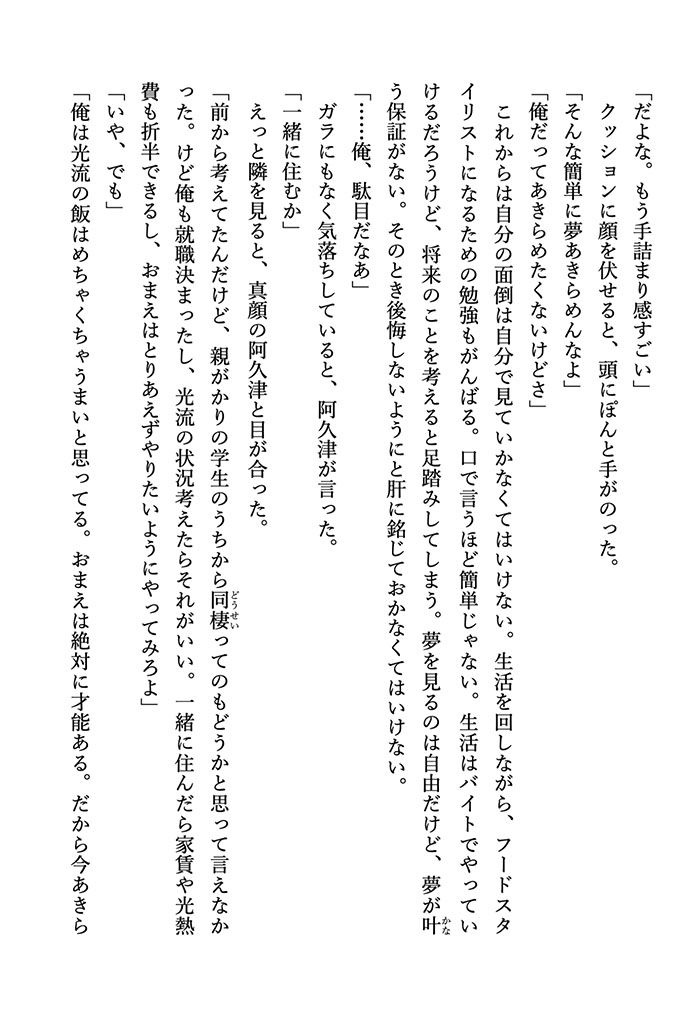 「だよな。もう手詰まり感すごい」
　クッションに顔を伏せると、頭にぽんと手がのった。
「そんな簡単に夢あきらめんなよ」
「俺だってあきらめたくないけどさ」
　これからは自分の面倒は自分で見ていかなくてはいけない。生活を回しながら、フードスタ
イリストになるための勉強もがんばる。口で言うほど簡単じゃない。生活はバイトでやってい
けるだろうけど、将来のことを考えると足踏みしてしまう。夢を見るのは自由だけど、夢が叶かな
う保証がない。そのとき後悔しないようにと肝に銘じておかなくてはいけない。
「……俺、駄目だなあ」
　ガラにもなく気落ちしていると、阿久津が言った。
「一緒に住むか」
　えっと隣を見ると、真顔の阿久津と目が合った。
「前から考えてたんだけど、親がかりの学生のうちから同棲どうせいってのもどうかと思って言えなか
った。けど俺も就職決まったし、光流の状況考えたらそれがいい。一緒に住んだら家賃や光熱
費も折半できるし、おまえはとりあえずやりたいようにやってみろよ」
「いや、でも」
「俺は光流の飯はめちゃくちゃうまいと思ってる。おまえは絶対に才能ある。だから今あきら